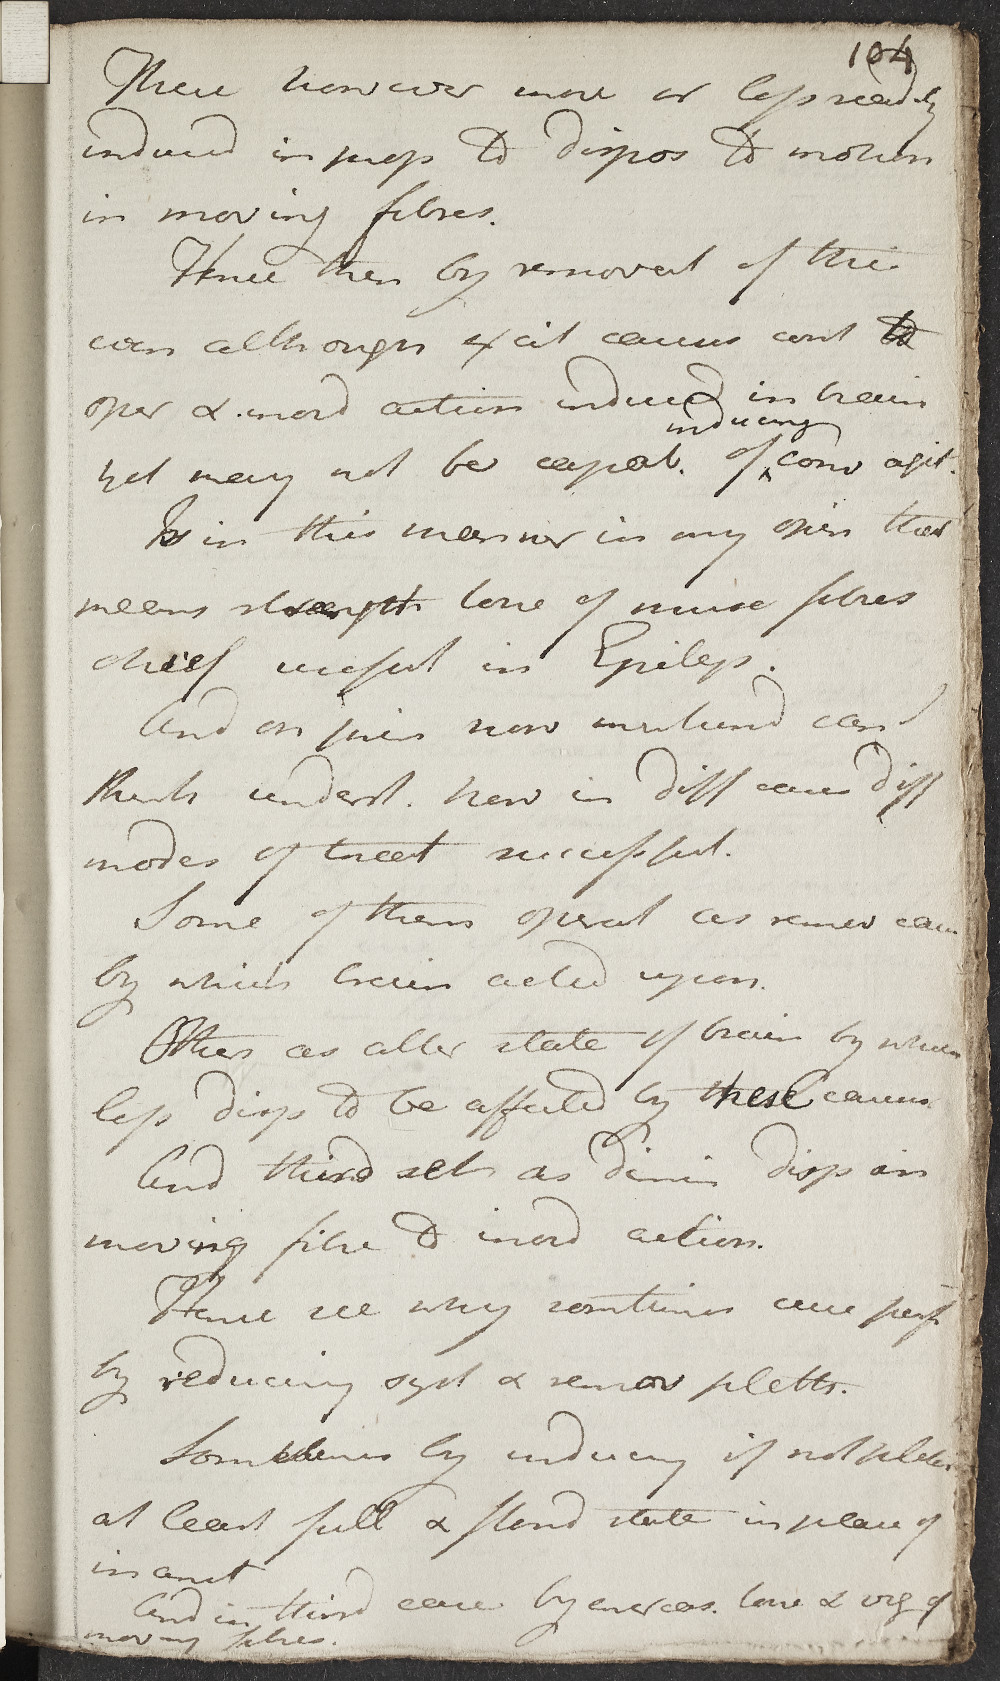 104
These however more or less readily
induced in prop to dispos to motion
in moving fibres.
Hence then by removal of this
even although excit causes cont to
oper & inord action induced in brain
inducing
yet may not be capab. of conv agit.
Is in this manner in my opin that
means strength tone of fibres
chief useful in Epileps.
And on now can I
think underst. how in diff cases diff
modes of treat successful.
Some of them operat as remov caus
by which brain acted upon.
Others as alter state of brain by which
less disp to be affected by these causes
And third set as dimin disp in
moving fibre to inord action.
Hence see why sometimes cure perf
by reducing syst & remov pleth.
Sometimes by inducing if not pleth
at least full & state in place of
inanit
And in third case by increas. tone & vig of
moving fibres.